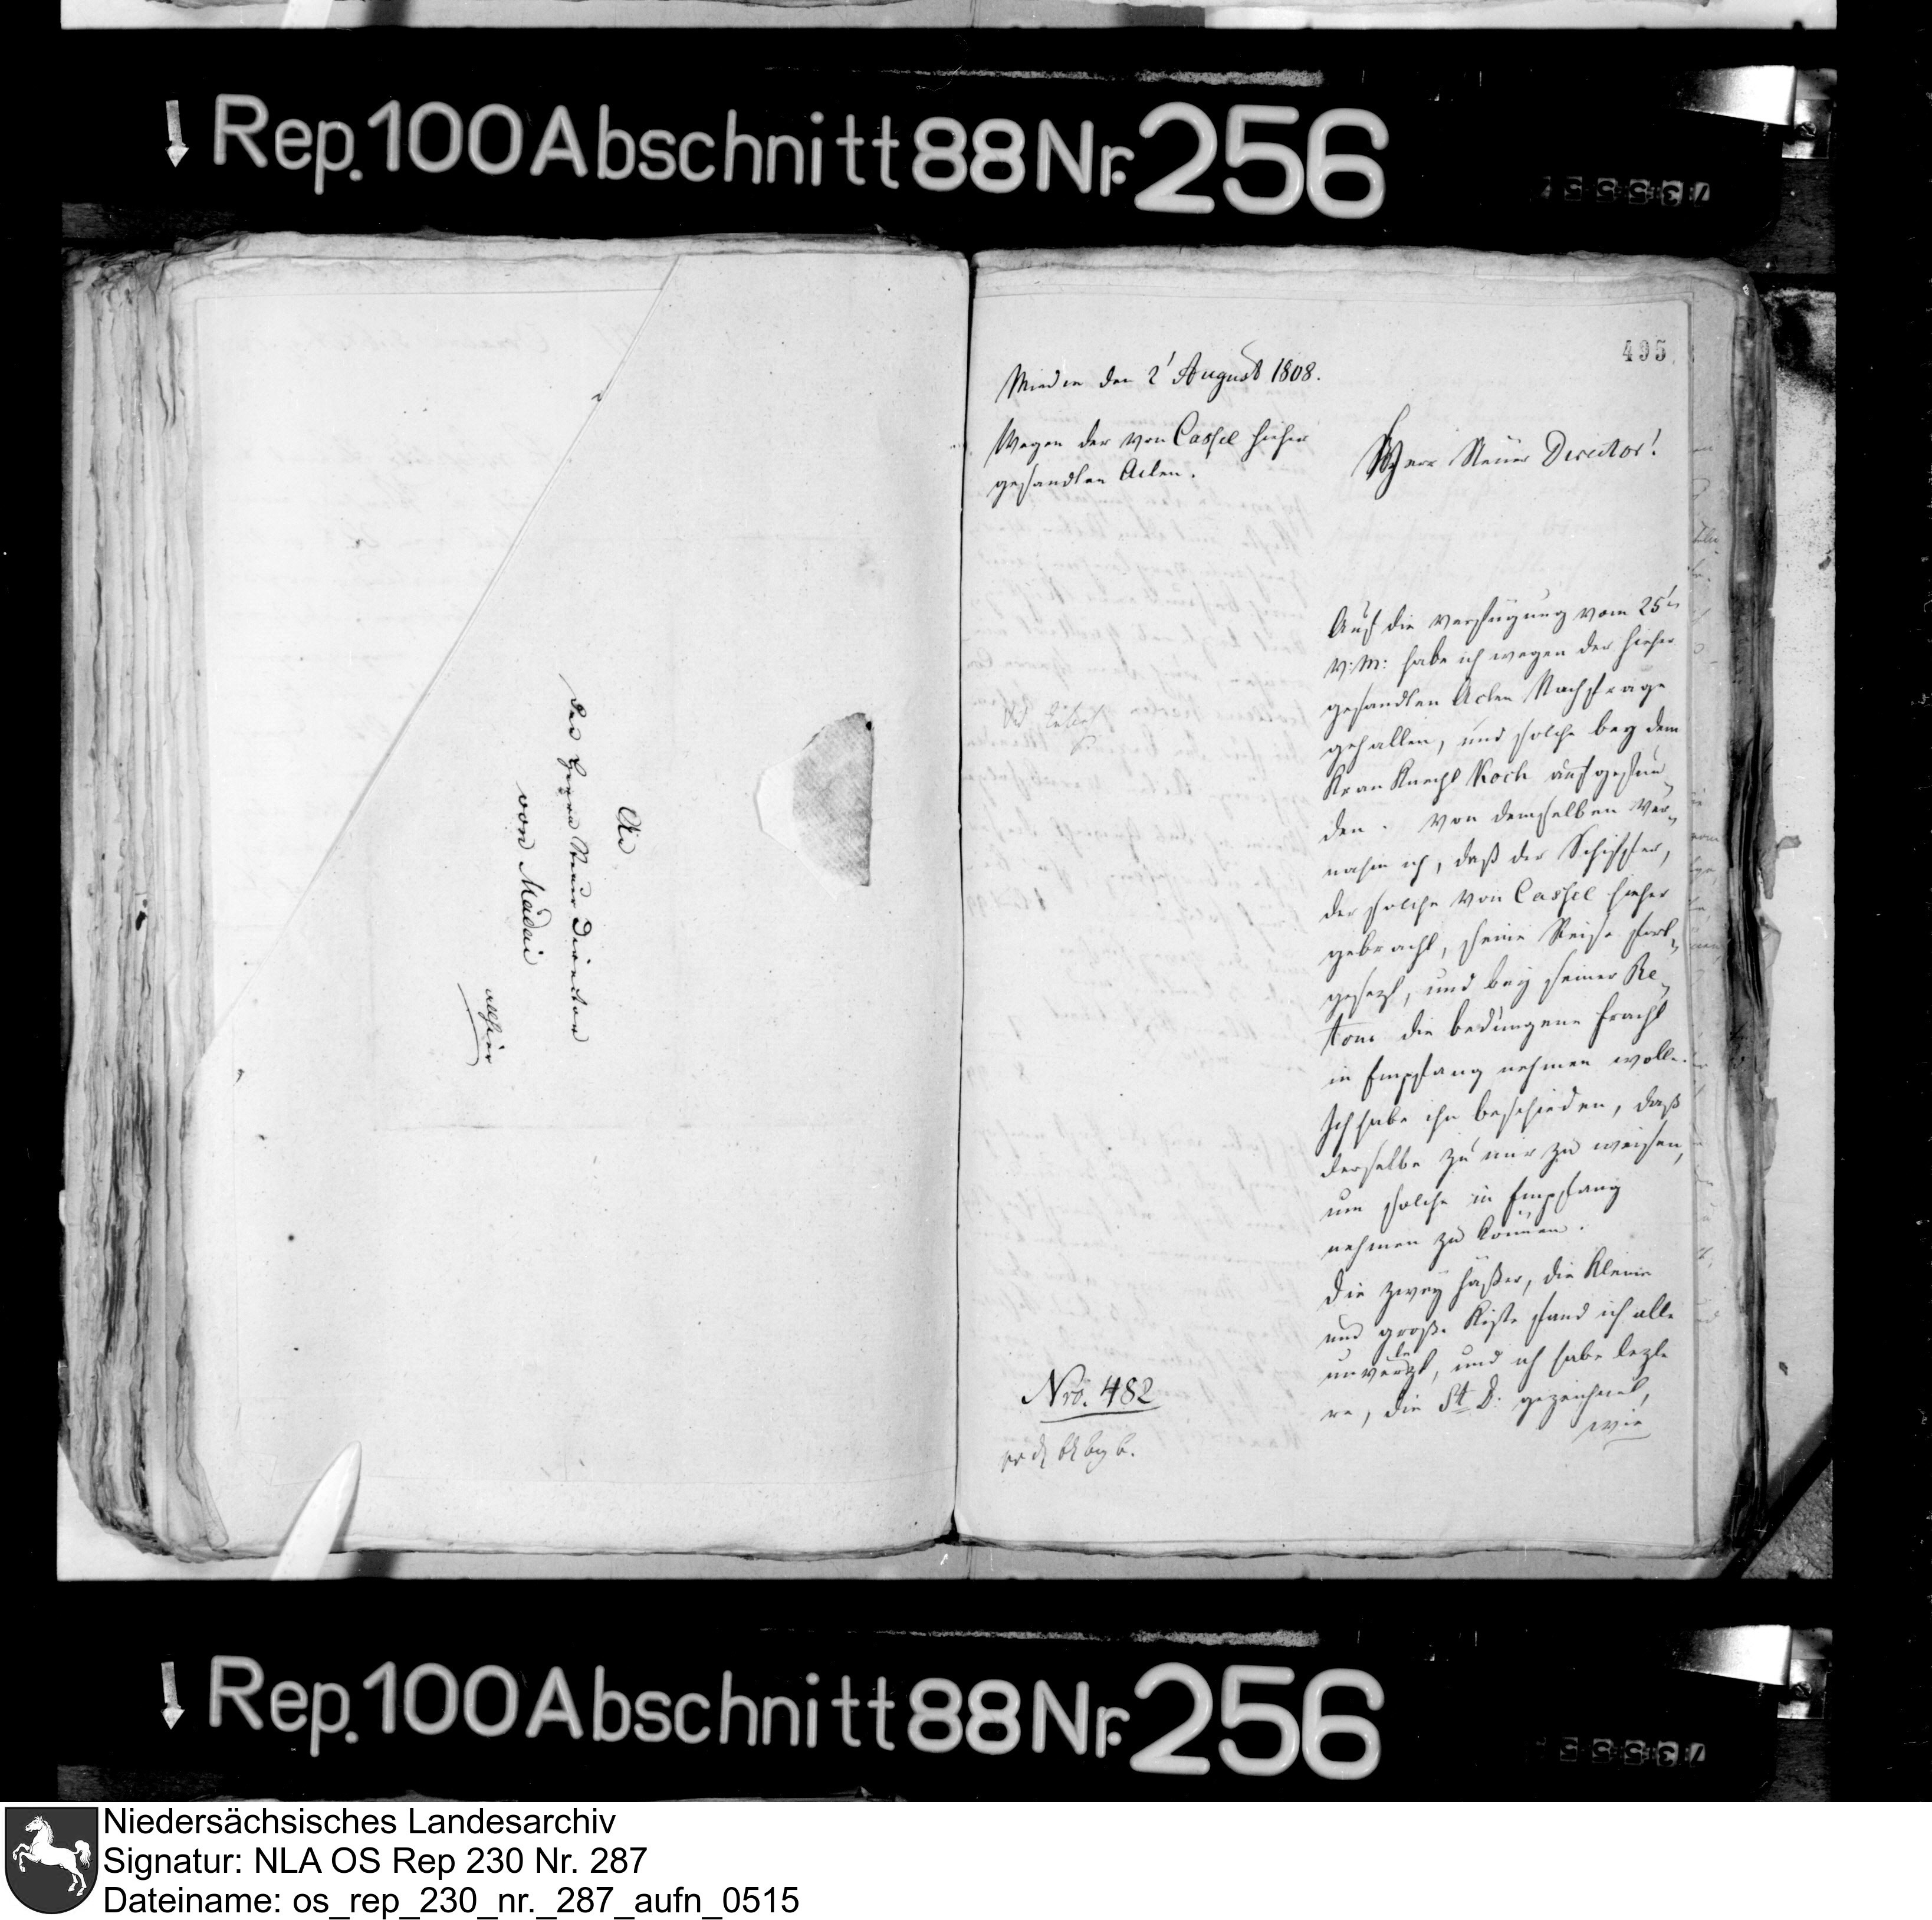 Rep. 100 Abschnitt 88 Nr. 256
An
des Herrn Steuer Director
von Madai
allhier
495
Minden den 2' August 1808.
Wegen der von Cassel hieher
gesandten Acten.
Herr Steuer Director!
Auf die Verfügung vom 25'n
v: M: habe ich wegen der hieher
gesandten Acten Nachfrage
gehalten, und solche bey dem
Kran Knecht Koch aufgefun¬
den. Von demselben ver¬
nahm ich, daß der Schiffer,
der solche von Cassel hieher
gebracht, seine Reise fort¬
gesezt, und bey seiner Re¬
tour die bedungene Fracht
in Empfang nehmen wolle.
Ich habe ihn beschieden, daß
derselbe zu mir zu weisen,
um solche in Empfang
nehmen zu können.
Die zwey Fäßer, die kleine
und große Kiste fand ich alle
unverlezt, und ich habe lezte
re, die St D. gezeichnet,
wie
Nro. 482
Rep. 100 Abschnitt 88 Nr. 256
Niedersächsisches Landesarchiv
Signatur: NLA OS Rep 230 Nr. 287
Dateiname: os_rep_230_nr._287_aufn_0515